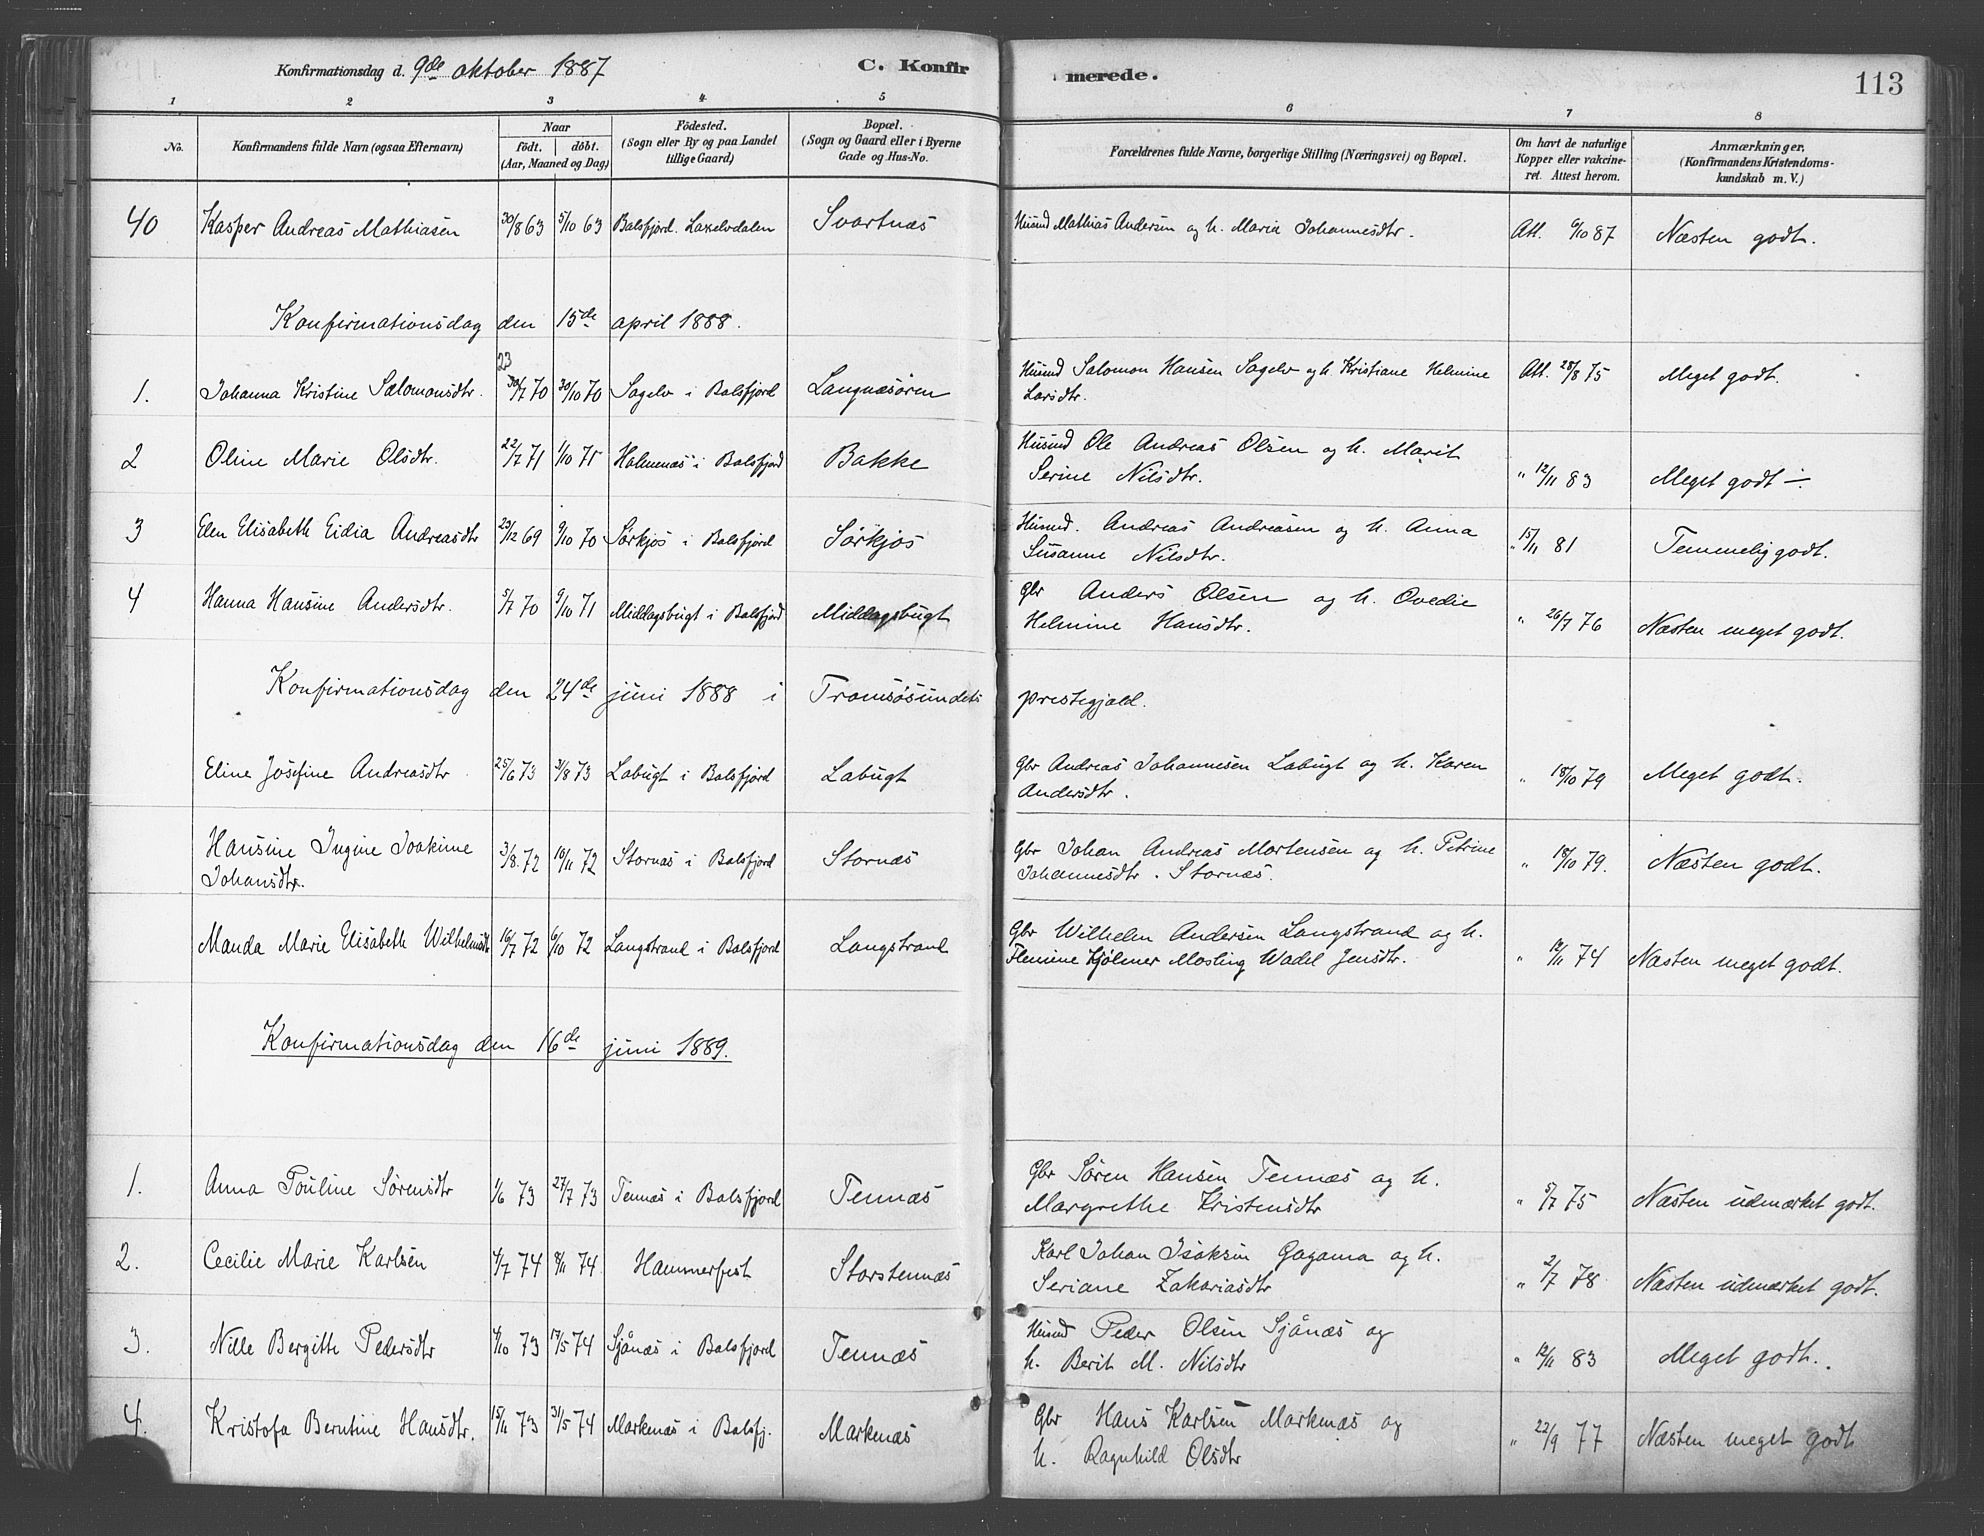 Konfirmationsdag d. 9de oktober 1887 C. Konfir merede. 113
1 2 3 4 5 6 7 8
No. Konfirmandens fulde Navn (ogsaa Efternavn) Naar födt. döbt. (Aar, Maaned og Dag) Födested. (Sogn eller By og paa Landet tillige Gaard) Bopæl. (Sogn og Gaard eller i Byerne Gade og Hus-No. Forældrenes fulde Navne, borgerlige Stilling (Næringsvei) og Bopæl. Om havt de naturlige Kopper eller vakcineret. Attest herom. Anmærkninger, (Konfirmandens Kristendomskundskab m. V.)
40 Kasper Andreas Mathiasen 30/8 63 5/10 63 Balsfjord. Laxelvdalen Svartnæs Husmd Mathias Andersen og h. Maria Johannesdtr. Att. 6/10 87 Næsten godt.
Konfirmationsdag den 15de april 1888.
23
1. Johanna Kristine Salomonsdtr. 30/7 70 30/10 70 Sagelv i Balsfjord Langnæsøren Husmd Salomon Hansen Sagelv og h. Kristiane Helmine Att. 28/8 75 Meget godt.
Larsdtr.
2 Oline Marie Olsdtr. 22/7 71 1/10 71 Holmenæs i Balsfjord Bakke Husmd Ole Andreas Olsen og h. Marit
Serine Nilsdtr. " 12/11 83 Meget godt ÷.
3 Elen Elisabeth Eidia Andreasdtr 23/12 69 9/10 70 Sørkjos i Balsfjord Sørkjos Husmd. Andreas Andreasen og h. Anna
Susanne Nilsdtr. " 15/11 81 Temmelig godt.
4 Hanna Hansine Andersdtr. 5/7 70 9/10 71 Middagsbugt i Balsfjord Middagsbugt Gbr Anders Olsen og h. Ovedie
Helmine Hansdtr. " 26/7 76 Næsten meget godt.
Konfirmationsdag den 24de juni 1888 i Tromsøsundets prestegjæld.
Eline Josefine Andreasdtr. 25/6 73 3/8 73 Labugt i Balsfjord Labugt Gbr Andreas Johannesen Labugt og h. Karen
Andersdtr. " 18/10 79 Meget godt.
Hansine Ingine Joakime 3/8 72 10/11 72 Stornæs i Balsfjord Stornæs Gbr Johan Andreas Mortensen og h. Petrine
Johansdtr. Johannesdtr. Stornæs. " 18/10 79. Næsten godt.
Manda Marie Elisabeth Wilhelmsdtr 16/7 72 6/10 72 Langstrand i Balsfjord Langstrand Gbr Wilhelm Andersen Langstrand og h.
Flemine Hjølmer Mosling Wadel Jensdtr. " 12/11 74 Næsten meget godt.
Konfirmationsdag den 16de juni 1889.
1. Anna Pouline Sørensdtr 1/6 73 27/7 73 Tennæs i Balsfjord Tennæs Gbr Søren Hansen Tennæs og h.
Margrethe Kristensdtr " 5/7 75 Næsten udmærket godt.
2. Cecilie Marie Karlsen 4/7 74 8/11 74 Hammerfest Storstennæs Karl Johan Isaksen Gagama og h.
Seriane Zakariasdtr " 2/7 78 Næsten udmærket godt.
3. Nille Bergitte Pedersdtr 4/10 73 17/5 74 Sjånæs i Balsfjord Tennæs Husmd Peder Olsen Sjånæs og
h. Berit M. Nilsdtr " 12/11 83 Meget godt.
4. Kristofa Berntine Hansdtr. 15/11 73 31/5 74 Markenæs i Balsfj. Markenæs Gbr Hans Karlsen Markenæs og
h. Ragnhild Olsdtr " 22/9 77 Næsten meget godt